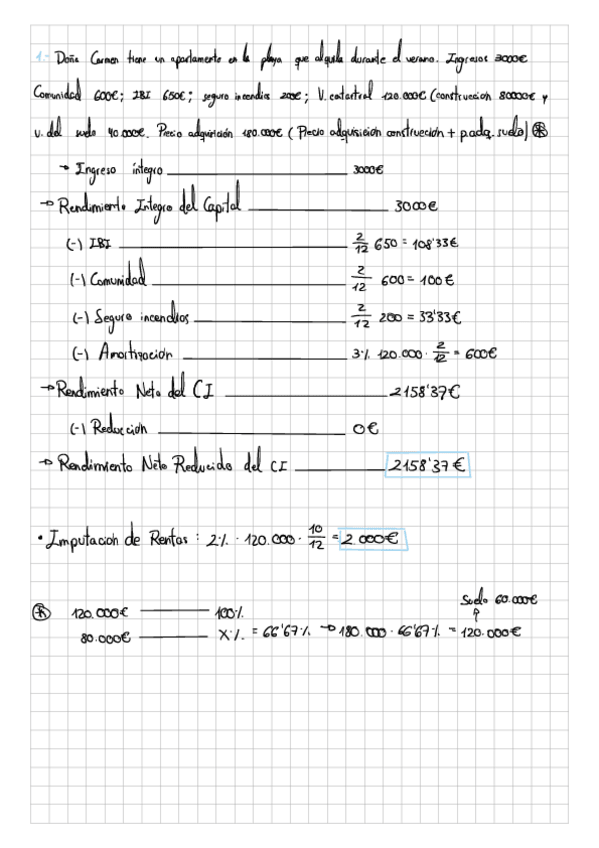 1.- Doña Carmen tiene un apartamento en la playa que alquila durante el verano. Ingresos 3000€
Comunidad 600€; IBI 650€; seguro incendios 200€; V. catastral 120.000€ (construccion 80000€ y
v. del suelo 40.000€. Precio adquirición 180.000€ (Precio adquisición construcción + p.adq. suelo) ⊛
→ Ingreso íntegro 3000€
→ Rendimiento Integro del Capital 3000€
(-) IBI 2/12 650 = 108'33€
(-) Comunidad 2/12 600 = 100€
(-) Seguro incendios 2/12 200 = 33'33€
(-) Amortización 3% 120.000 · 2/12 = 600€
→ Rendimiento Neto del CI 2158'37€
(-) Reducción 0€
→ Rendimiento Neto Reducido del CI 2158'37€
• Imputacion de Rentas: 2% · 120.000 · 10/12 = 2.000€
suelo 60.000€
⊛ 120.000€ 100%
80.000€ X% = 66'67% → 180.000 · 66'67% = 120.000€